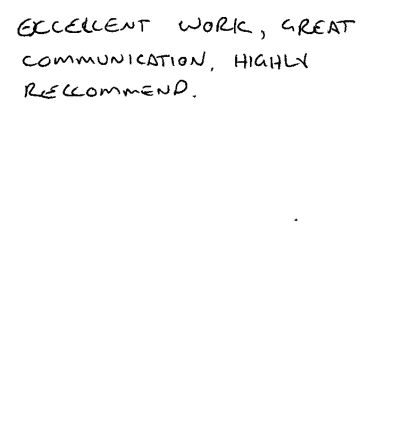 EXCELLENT WORK, GREAT
COMMUNICATION, HIGHLY
RECCOMMEND.